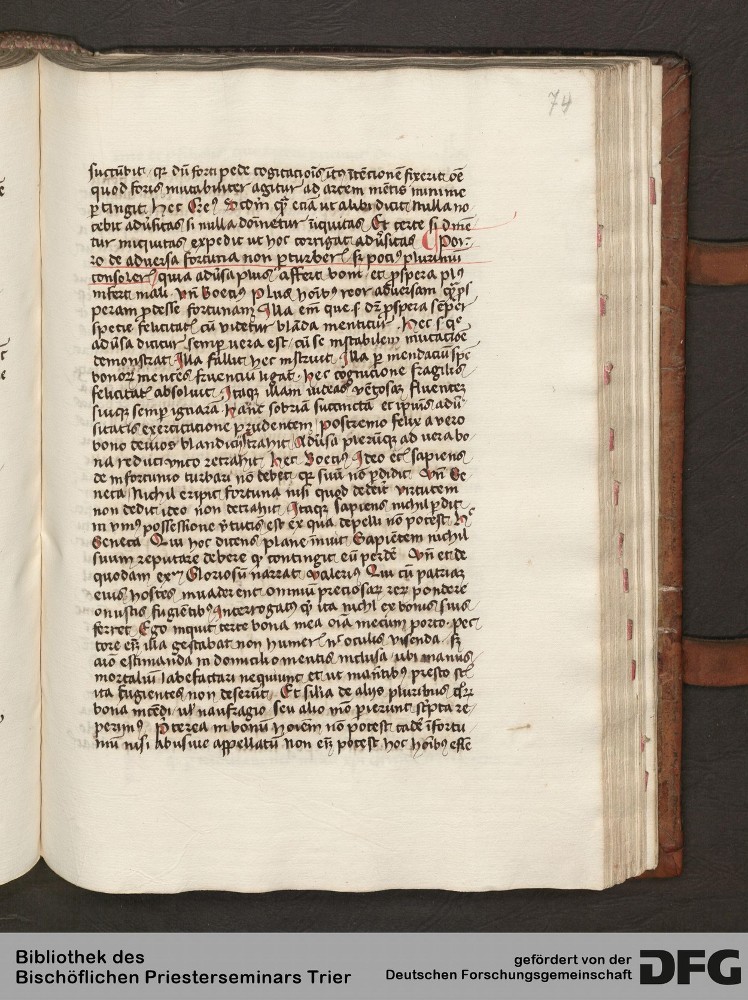 74
succubit. qz dū forti pede cogitacōis
quod foris mutabiliter agitur ad arcem mētis minime
ptingit hec
cebit adūsitas si nulla dominetur iniquitas Et certe si dnīe
tur iniquitas expedit ut hoc corrigat adūsitas Por
ro de adversa fortuna non pturber si pociꝰ plurimū
consoler quia adūsa plus affert boni et pspera plꝰ
infert mali. vn̄ Boeciꝰ Plus hoībꝰ reor adversam
peram pdesse fortunam Illa em̄ que
specie felicitatꝭ cū videtur blāda mentitur. hec
adūsa dicitur semp vera est cū se instabilem mutacōe
demonstrat Illa fallit hec instruit Illa p mendaciū spē
bonoꝝ mentes fruenciū ligat hec cogitcione fragilis
felicitatꝭ absoluit Itaqꝫ illam videas vētosam fluentez
suiqꝫ semp ignarā hanc sobriā succinctā et ipiꝰ adū
sitatis exercitacione prudentem postremo felix a vero
bono deuios blandicijs trahit Adūsa plerūqꝫ ad vera bo
na reduci vnco retrahit hec Boeciꝰ Ideo ecꝭ sapiens
de infortunio turbari nō debet qꝛ suū nō pdidit vn̄ Se
neca Nichil eripit fortuna nisi quod dedit virtutem
non dedit ideo non detrahit Itaqꝫ sapiens nichil pdit
in vniꝰ possessione vtutis est ex qua depelli nō potest hᶜ
Seneca Qui hoc dicens plane inuit Sapiētem nichil
suum reputare debere qꝫ contingit eū pdē vn̄ et de
quodam Gloriosū narrat valeriꝰ Qui cū patriaz
eius hostes invaderent omniū preciosaꝝ reꝝ pondere
onustis fugiētibꝰ Interrogatꝰ qꝫ ita nichl ex bonis suis
ferret Ego inquit certe bona mea oīa mecum porto pec
tore em̄ illa gestabat non humerꝭ nᶜ oculis visenda sꝫ
aīo estimanda in domicilio mentis inclusa ubi manus
mortaliū labefactari nequiunt et ut manētibꝰ presto st̄
ita fugientes non deserūt Et silia de alijs pluribus
bona incēdi uł naufragio seu alio mō pierunt scpta re
perimꝰ Pterea in bonū hoīem nō potest cadē īfortu
niū nisi abusiue appellatū non em̄ potest hoc hoībꝰ esse
Bibliothek des
Bischöflichen Priesterseminars Trier
gefördert von der
Deutschen Forschungsgemeinschaft
DFG